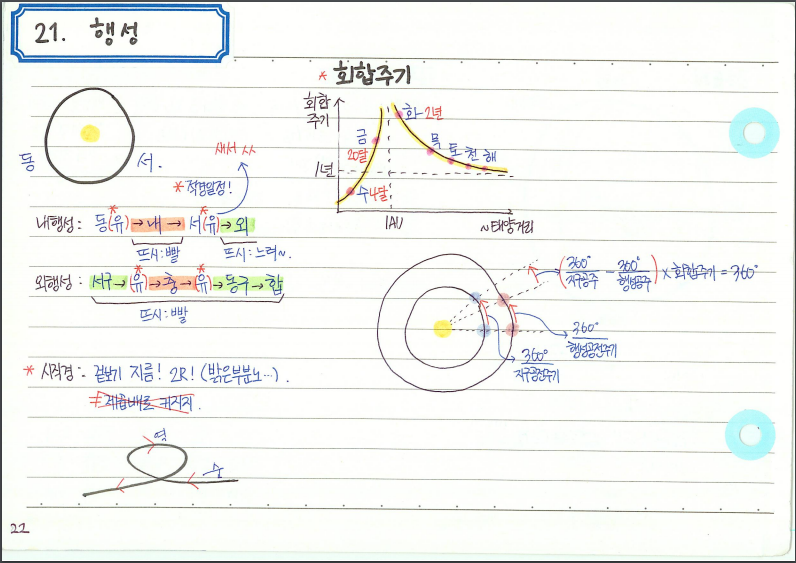 21. 행성
* 회합주기
회합
주기
화-2년
금
20달
목 토 천 해
1년
수4달
1AU
~태양거리
동 서.
새서
* 적경일정!
내행성: 동(유)→내→서(유)→외
뜨시:빨 뜨시:느려~.
외행성: 서구→(유)→충→(유)→동구→합
뜨시:빨
(360°/지구공주 - 360°/행성공주) × 회합주기 = 360°
360°
행성공전주기
360°
지구공전주기
* 시직경: 겉보기 지름! 2R! (밝은부분노…).
≠ 제곱배로 커지지.
역
순
22